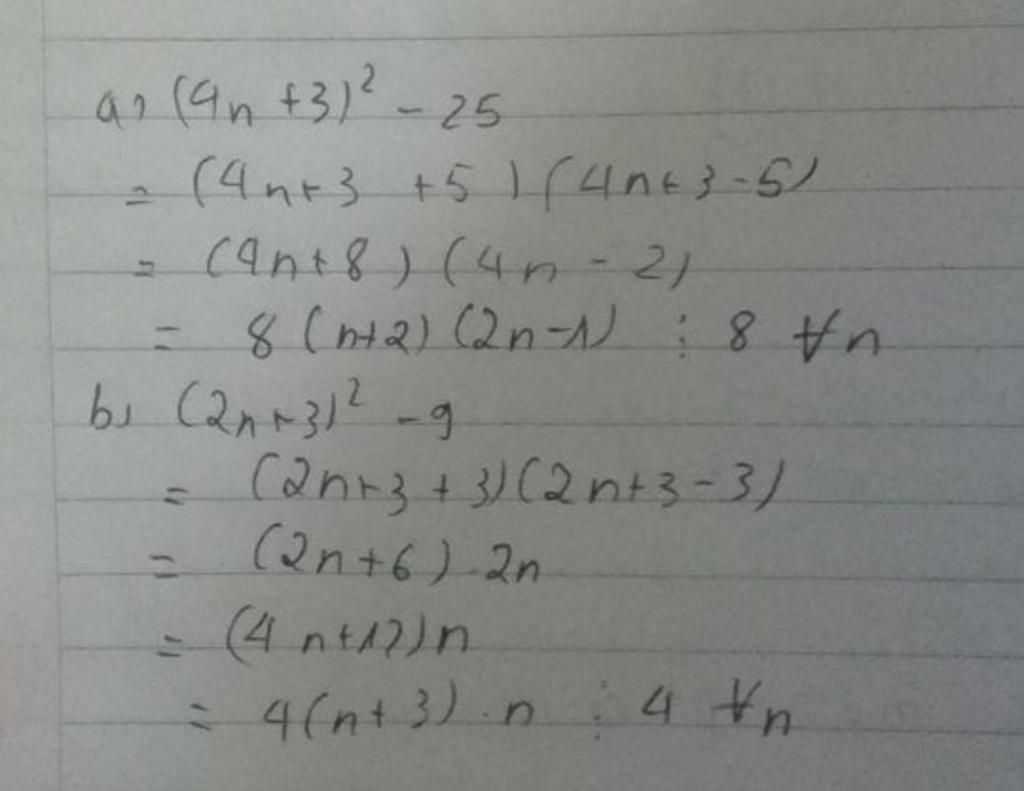 a, (4n+3)² - 25
= (4n+3 +5) (4n+3-5)
= (4n+8) (4n-2)
= 8 (n+2) (2n-1) ⋮ 8 ∀n
b, (2n+3)² - 9
= (2n+3+3)(2n+3-3)
= (2n+6).2n
= (4n+12)n
= 4(n+3).n ⋮ 4 ∀n